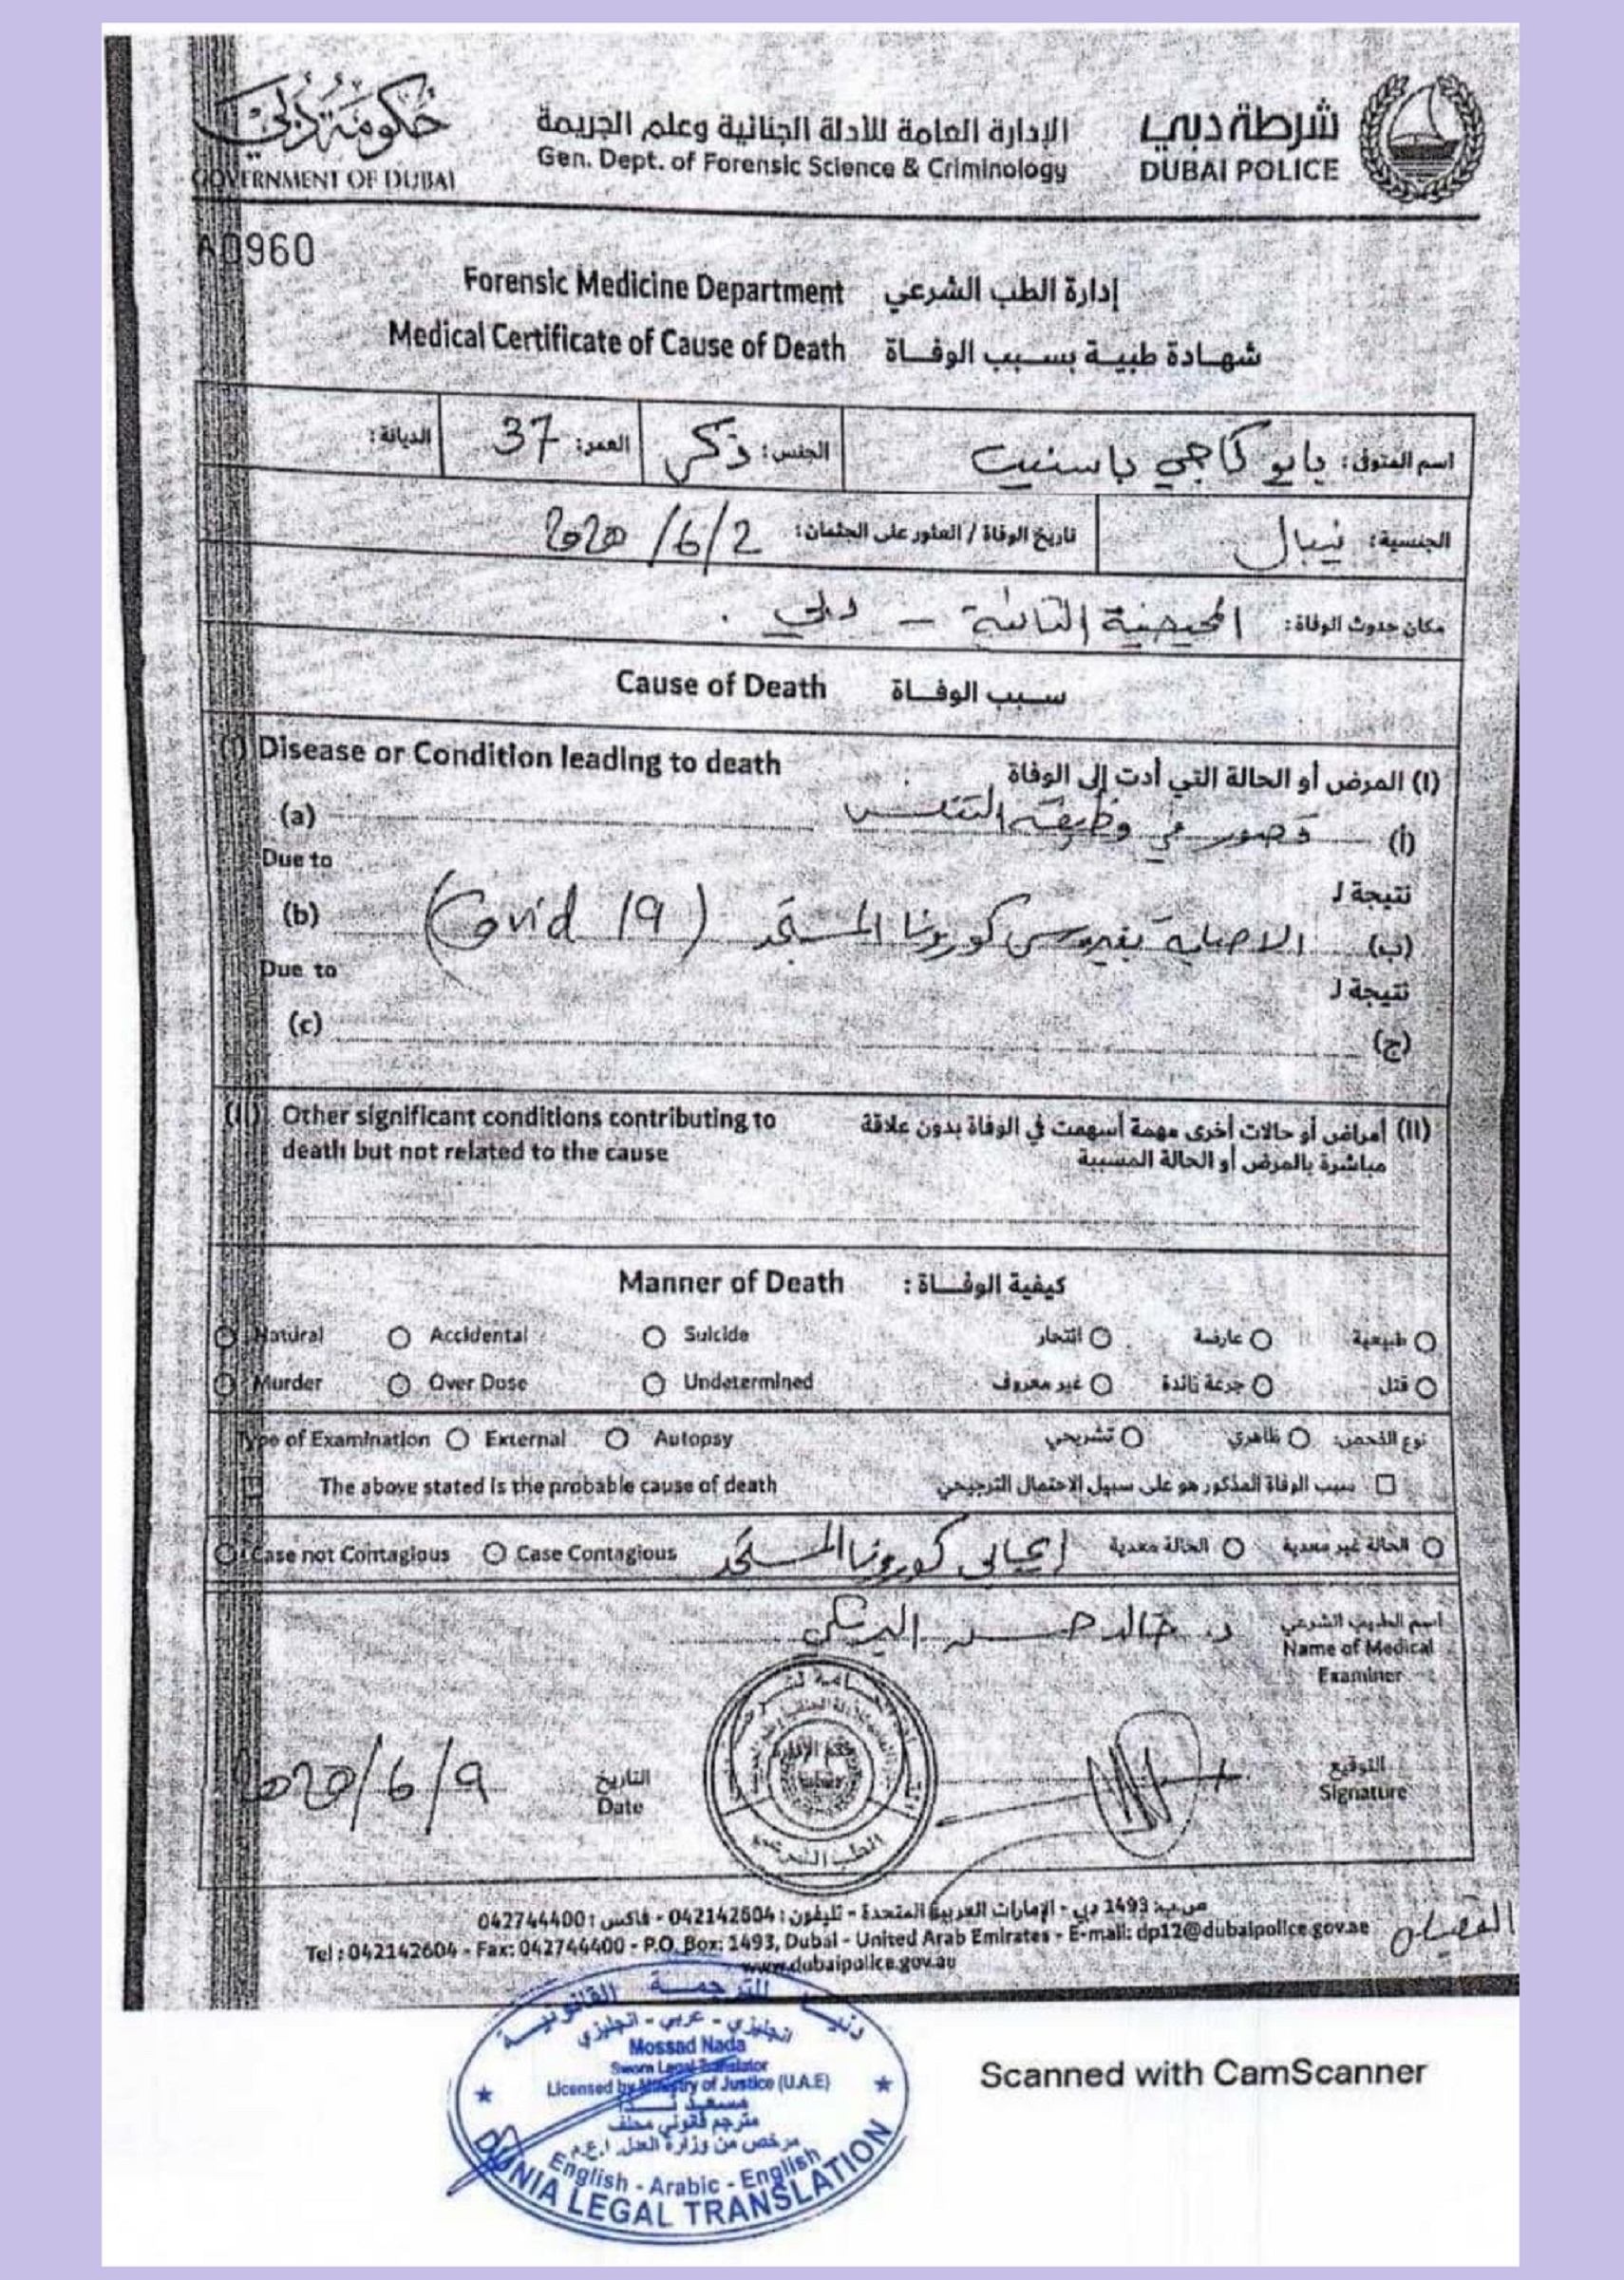 حكومة دبي
GOVERNMENT OF DUBAI
الإدارة العامة للأدلة الجنائية وعلم الجريمة
Gen. Dept. of Forensic Science & Criminology
شرطة دبي
DUBAI POLICE
A0960
Forensic Medicine Department إدارة الطب الشرعي
Medical Certificate of Cause of Death شهادة طبية بسبب الوفاة
اسم المتوفى: بابو كاجي باسنيت الجنس: ذكر العمر: 37 الديانة:
الجنسية: نيبال تاريخ الوفاة / العثور على الجثمان: 2020/6/2
مكان حدوث الوفاة: المحيصنة الثانية - دبي.
Cause of Death سبب الوفاة
(I) Disease or Condition leading to death (I) المرض أو الحالة التي أدت إلى الوفاة
(a) (أ) قصور في وظيفة التنفس
Due to نتيجة لـ
(b) (ب) الاصابة بفيروس كورونا المستجد (Covid 19)
Due to نتيجة لـ
(c) (ج)
(II) Other significant conditions contributing to (II) أمراض أو حالات أخرى مهمة أسهمت في الوفاة بدون علاقة
death but not related to the cause مباشرة بالمرض أو الحالة المسببة
Manner of Death كيفية الوفاة :
Natural Accidental Suicide انتحار عارضة طبيعية
Murder Over Dose Undetermined غير معروف جرعة زائدة قتل
Type of Examination External Autopsy نوع الفحص: ظاهري تشريحي
The above stated is the probable cause of death سبب الوفاة المذكور هو على سبيل الاحتمال الترجيحي
Case not Contagious Case Contagious الحالة غير معدية الحالة معدية إيجابي كورونا المستجد
اسم الطبيب الشرعي د. خالد حسن
Name of Medical
Examiner
2020/6/9 التاريخ التوقيع
Date Signature
الطب الشرعي
ص.ب: 1493 دبي - الإمارات العربية المتحدة - تليفون: 042142604 - فاكس: 042744400
Tel : 042142604 - Fax: 042744400 - P.O. Box: 1493, Dubai - United Arab Emirates - E-mail: dp12@dubaipolice.gov.ae
www.dubaipolice.gov.au
دنيا للترجمة القانونية
انجليزي - عربي - انجليزي
Mossad Nada
Sworn Legal Translator
Licensed by Ministry of Justice (U.A.E)
مسعد ندا
مترجم قانوني محلف
مرخص من وزارة العدل ا.ع.م
English - Arabic - English
DUNIA LEGAL TRANSLATION
Scanned with CamScanner